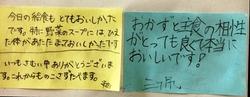 今日の給食も とてもおいしかった
です。特に野菜のスープにはひえ
た体があたたまっておいしかったです
いつもさむい中ありがとうございま
す。これからものこさずたべます。
おかずと主食の相性
がとっても良くて本当に
おいしいです!